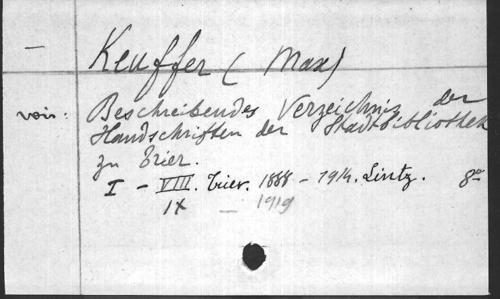 — Keuffer (Max)
voir: Beschreibendes Verzeichnis der
Handschriften der Stadtbibliothek
zu Trier.
I – VIII. Trier. 1888 – 1914. Lintz. 8°
IX — 1919